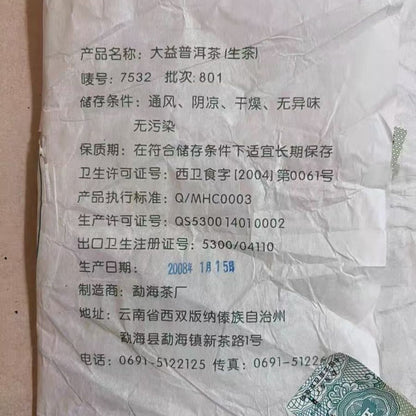 产品名称: 大益普洱茶(生茶)
唛号: 7532 批次:801
储存条件: 通风、阴凉、干燥、无异味
无污染
保质期: 在符合储存条件下适宜长期保存
卫生许可证号: 西卫食字[2004]第0061号
产品执行标准: Q/MHC0003
生产许可证号: QS530014010002
出口卫生注册证号: 5300/04110
生产日期: 2008年1月15日
制造商: 勐海茶厂
地址: 云南省西双版纳傣族自治州
勐海县勐海镇新茶路1号
电话: 0691-5122125 传真: 0691-5122